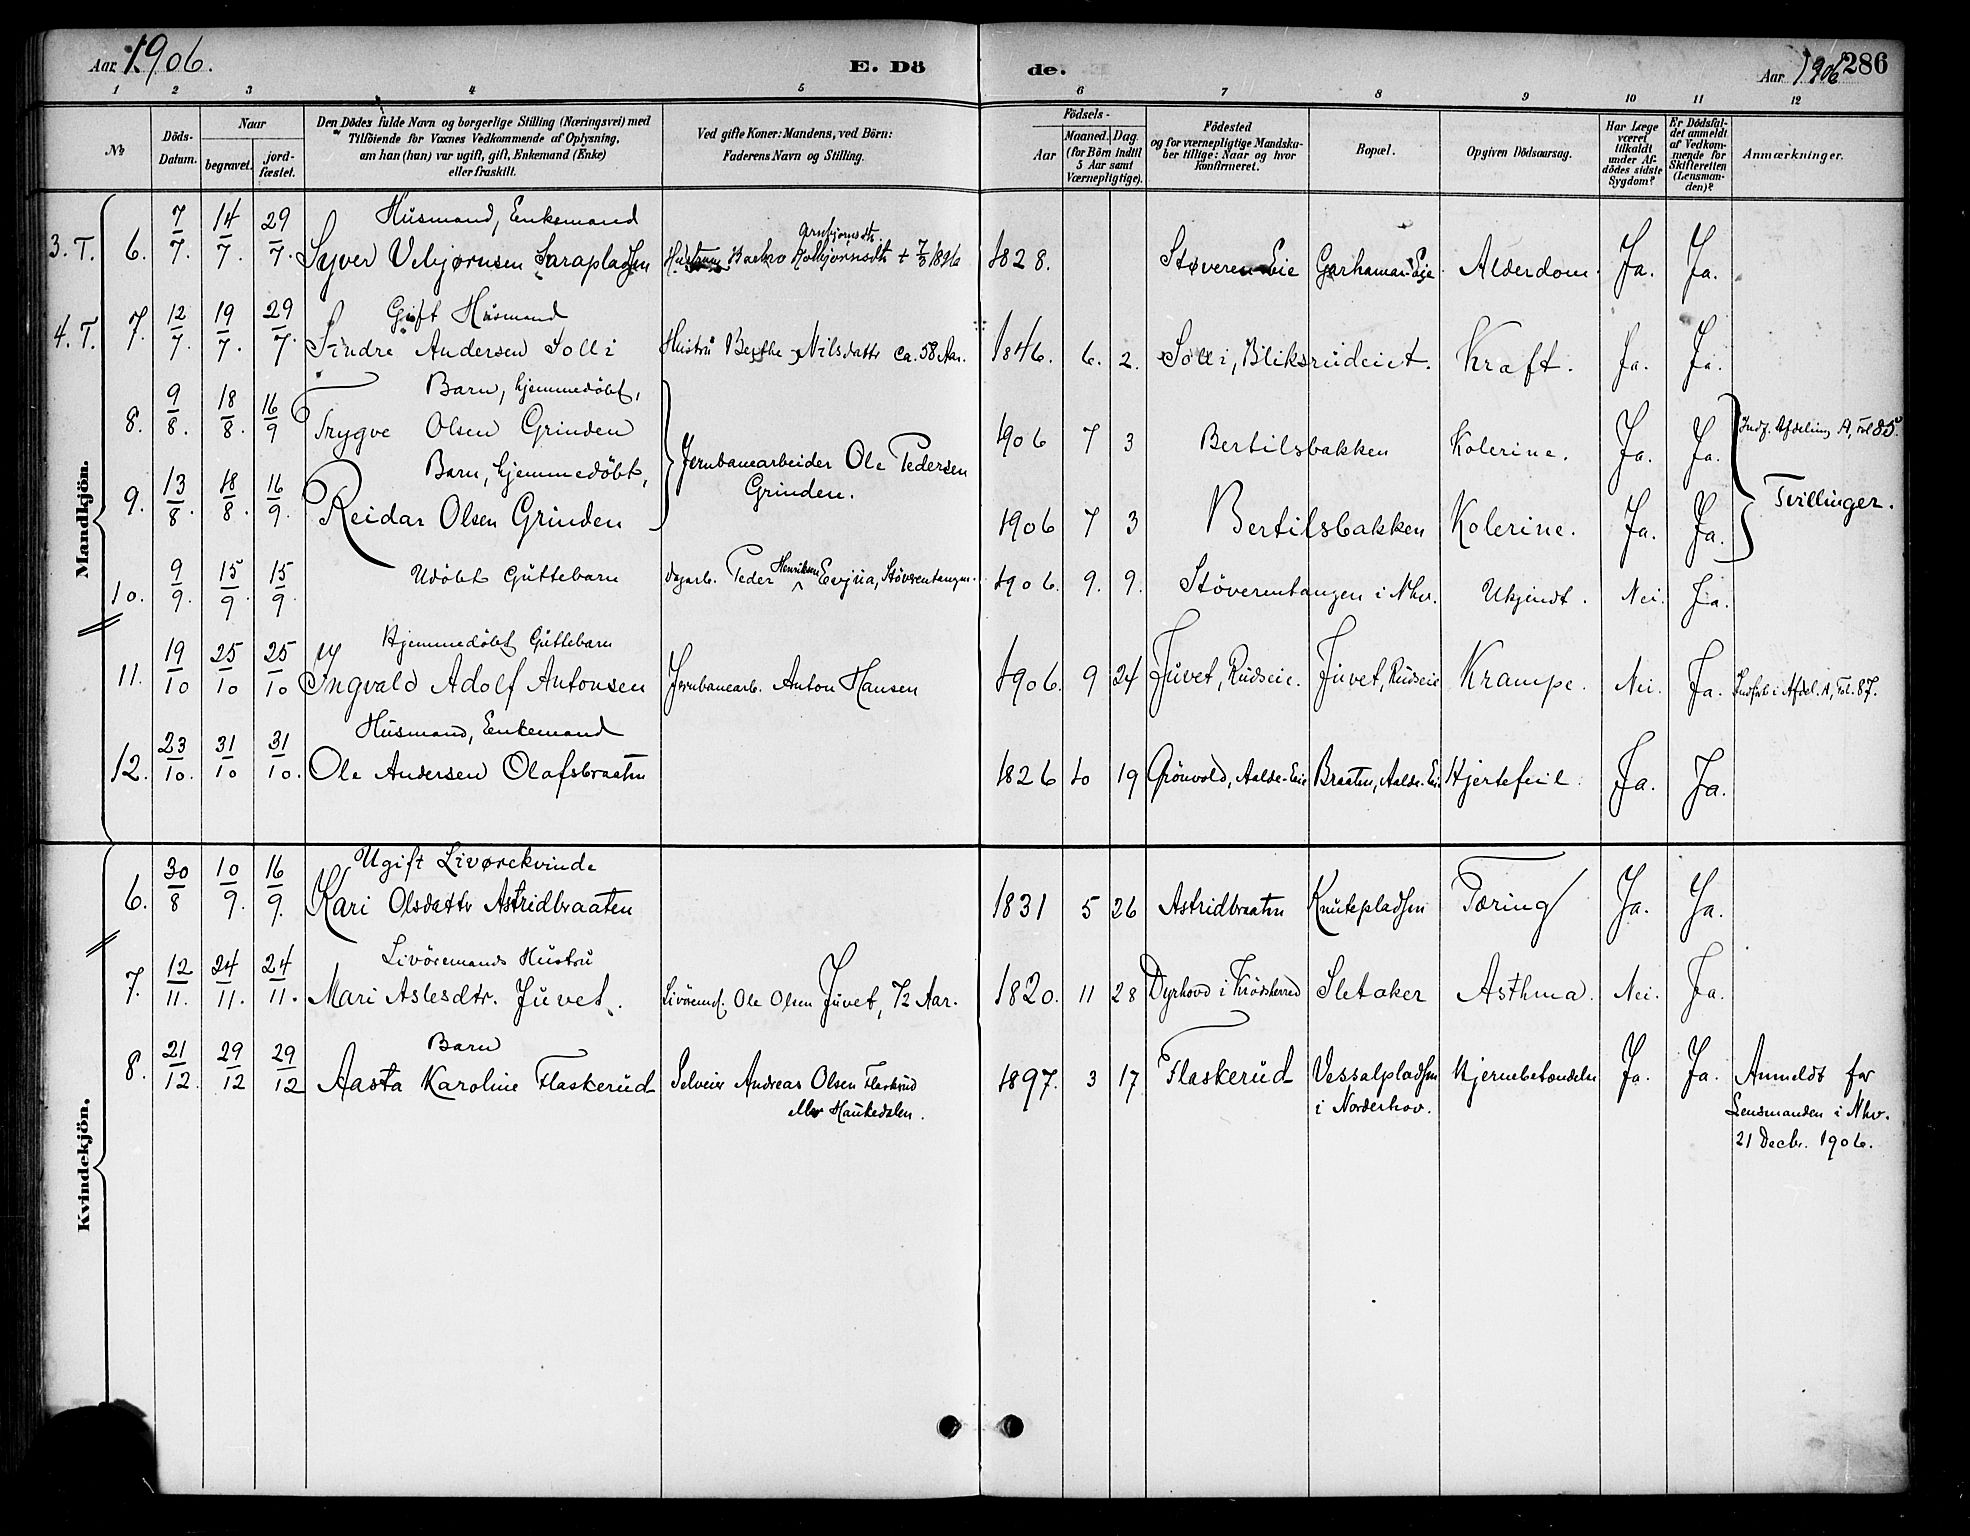 Aar 1906.
E. Dö
de.
Aar 1906
286
1 2 3 4 5 6 7 8 9 10 11 12
No
Döds-Datum.
Naar
begravet.
jord-fæstet.
Den Dödes fulde Navn og borgerlige Stilling (Næringsvei) med
Tilföiende for Voxnes Vedkommende af Oplysning,
om han (hun) var ugift, gift, Enkemand (Enke)
eller fraskilt.
Ved gifte Koner: Mandens, ved Börn:
Faderens Navn og Stilling.
Födsels-
Aar
Maaned. Dag.
(for Börn indtil
5 Aar samt
Værnepligtige).
Födested
og for værnepligtige Mandska-
ber tillige: Naar og hvor
konfirmeret.
Bopæl.
Opgiven Dödsaarsag.
Har Læge
været
tilkaldt
under Af-
dödes sidste
Sygdom?
Er Dödsfal-
det anmeldt
af Vedkom-
mende for
Skifteretten
(Lensman-
den)?
Anmærkninger.
Mandkjön.
Husmand, Enkemand
3. T. 6. 7/7. 14/7. 29/7. Syver Vebjørnsen Sarapladsen Hustru + 7/3 1896 1828. Støveren Eie Alderdom. Ja. Ja.
Gift Husmand
4. T. 7. 12/7. 19/7. 29/7. Sindre Andersen Solli Hustru Berthe Nilsdatter ca. 58 Aar. 1846. 6. 2. Solli, Bliksrudeiet. Kraft. Ja. Ja.
Barn, hjemmedöbt,
8. 9/8. 18/8. 16/9 Trygve Olsen Grinden 1906 7 3 Bertilsbakken Kolerine. Ja. Ja. Indf. Afdeling A, Fol 85.
Jernbanearbeider Ole Pedersen
Grinden.
Barn, hjemmedöbt,
9. 13/8. 18/8. 16/9. Reidar Olsen Grinden 1906 7 3 Bertilsbakken Kolerine. Ja. Ja. Tvillinger.
10. 9/9. 15/9. 15/9. Udöbt Guttebarn dagarb. Peder Henriksen Evjua, Stöverentangen. 1906. 9. 9. Stöverentangen i Nhov. Ukjendt. Nei. Ja.
Hjemmedöbt Guttebarn
11. 19/10 25/10 25/10 Ingvald Adolf Antonsen Jernbanearb. Anton Hansen 1906. 9 24 Juvet, Rudseie. Juvet, Rudseie Krampe. Nei. Ja. Indført i Afdel. A, Fol. 87.
Husmand, Enkemand
12. 23/10. 31/10 31/10. Ole Andersen Olafsbraaten 1826 10 19 Grönvold, Aalde-Eie Braaten, Aalde-Eie Hjertefeil. Ja. Ja.
Kvindekjön.
Ugift Livørekvinde
6. 30/8 10/9. 16/9. Kari Olsdatter Astridbraaten 1831 5 26 Astridbraaten Knutepladsen Tæring Ja. Ja.
Livöremands Hustru
7. 12/11. 24/11. 24/11. Mari Aslesdtr. Juvet. Livöremd. Ole Olsen Juvet, 72 Aar. 1820. 11 28 Dyrhovd i Krödsherred Sletaker Asthma. Nei. Ja.
Barn
8. 21/12. 29/12 29/12 Aasta Karoline Flaskerud Selveier Andreas Olsen Flaskerud 1897. 3 17 Flaskerud Vessalpladsen Hjernebetændelse Ja. Ja. Anmeldt for
eller Haukedalen. i Norderhov. Lensmanden i Nhov.
21 Decbr. 1906.